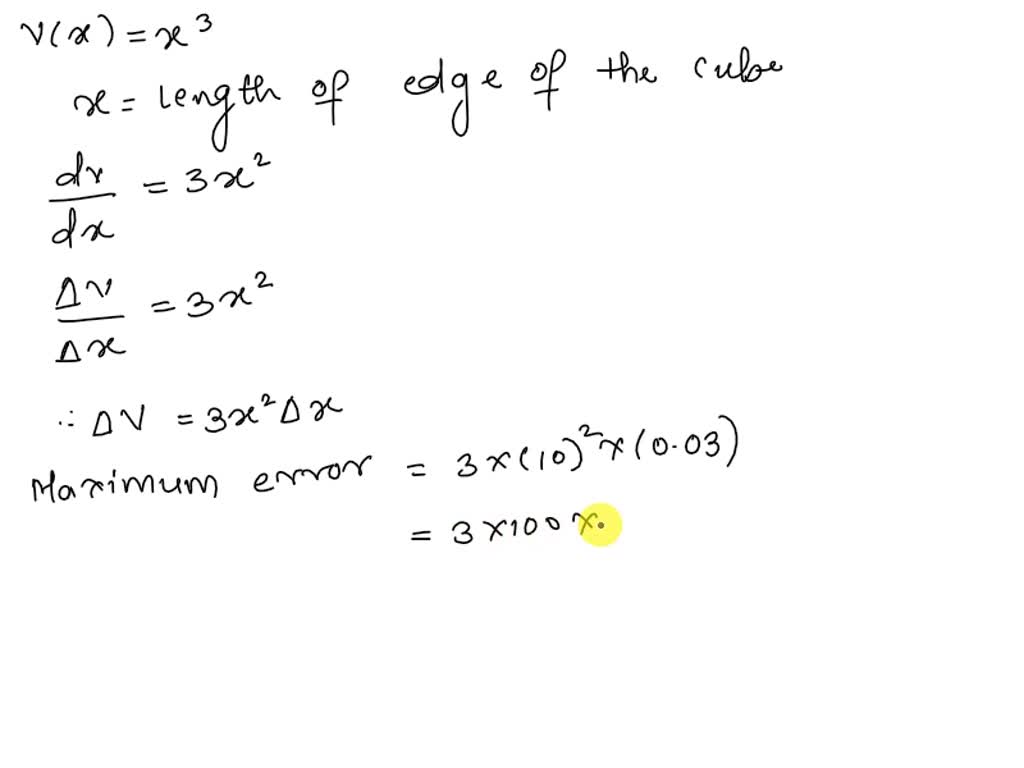 V(x) = x³
x = length of edge of the cube
dv/dx = 3x²
Δv/Δx = 3x²
∴ ΔV = 3x²Δx
Maximum error = 3×(10)²×(0.03)
= 3×100×.